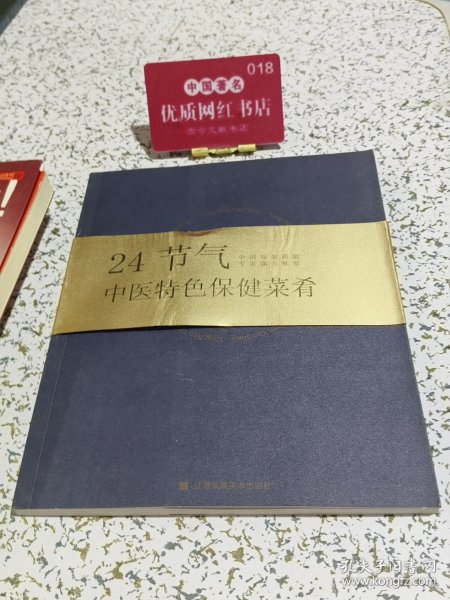 018
中国著名
优质网红书店
古今文献书店
24 节气
中国知名药膳
专家强力推荐
中医特色保健菜肴
江苏凤凰美术出版社
孔夫子旧书网
www.kongfz.com